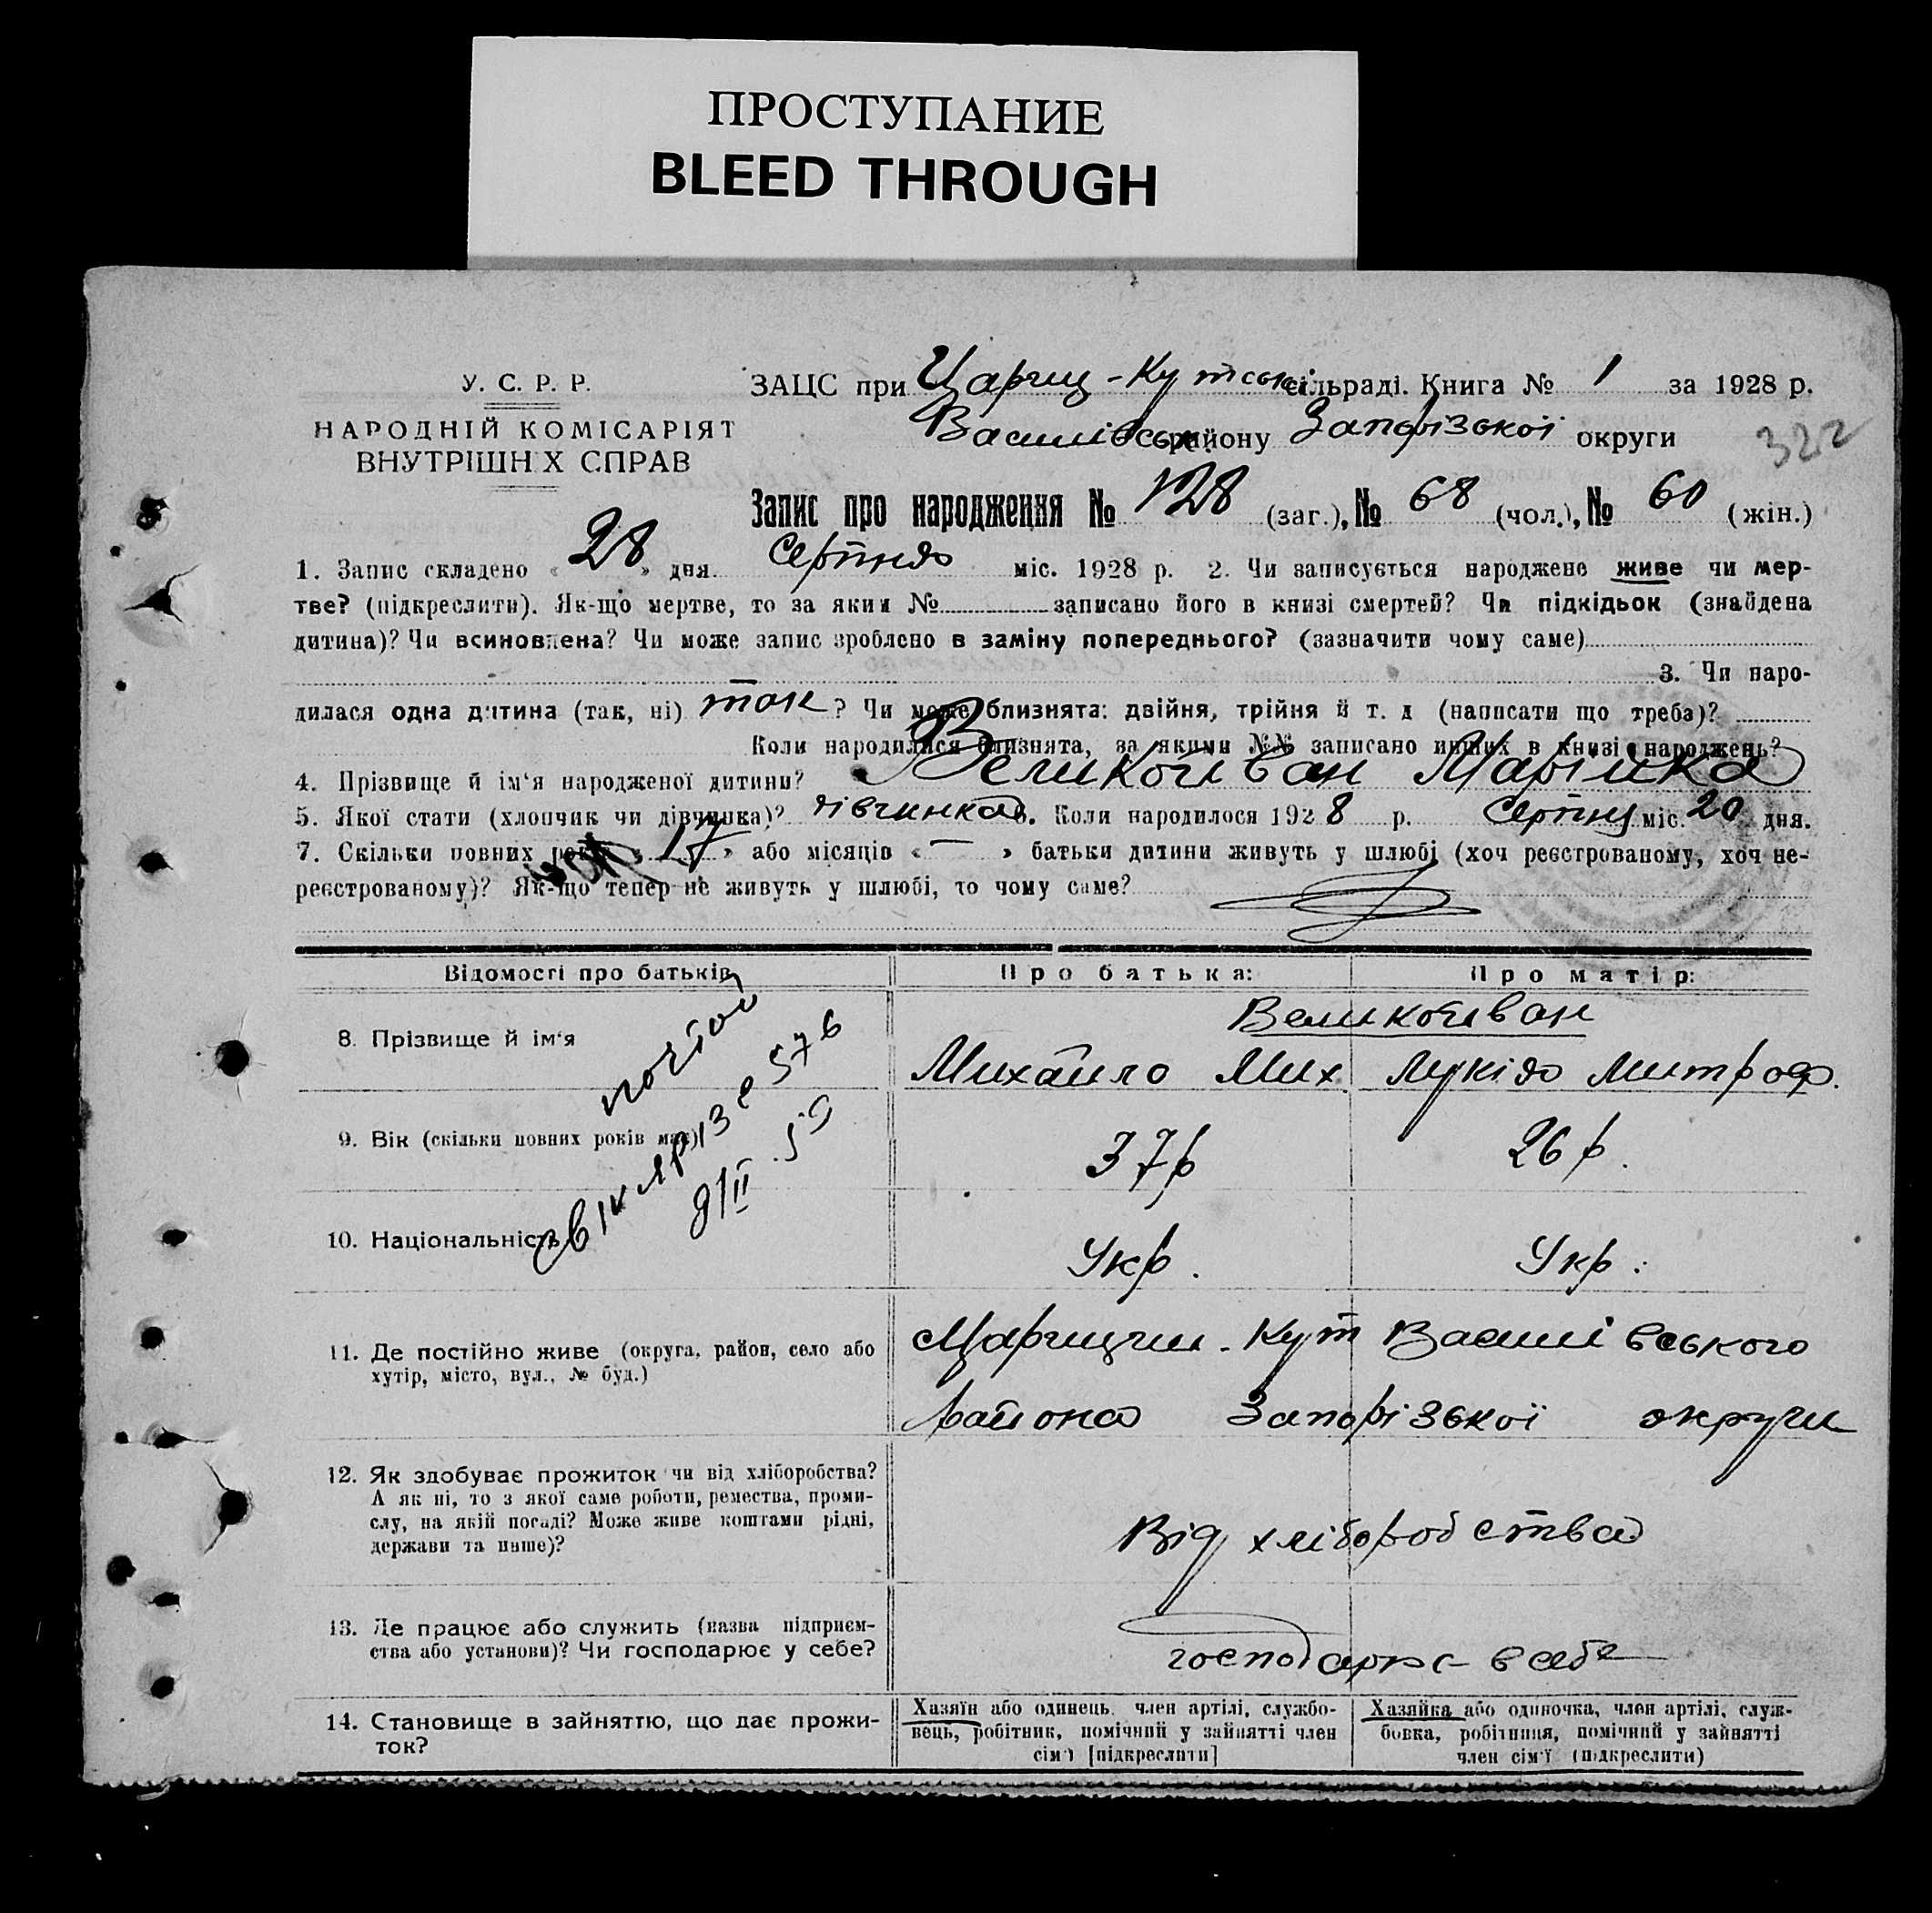 ПРОСТУПАНИЕ
BLEED THROUGH
У. С. Р. Р.
НАРОДНІЙ КОМІСАРІЯТ
ВНУТРІШН Х СПРАВ
ЗАЦС при Цариц-Кутські сільраді. Книга № 1 за 1928 р.
Василівськ. району Запорізької округи
322
Запис про народження № 128 (заг.), № 68 (чол.), № 60 (жін.)
1. Запис складено « 28 » дня Серпня міс. 1928 р. 2. Чи записується народжене живе чи мер-
тве? (підкреслити). Як-що мертве, то за яким № записано його в книзі смертей? Чи підкідьок (знайдена
дитина)? Чи всиновлена? Чи може запис зроблено в заміну попереднього? (зазначити чому саме)
3. Чи наро-
дилася одна дитина (так, ні) так ? Чи може близнята: двійня, трійня й т. д (написати що треба)?
Коли народилися близнята, за якими №№ записано инших в книзі народжень?
4. Прізвище й ім'я народженої дитини? Великоиван Марійка
5. Якої стати (хлопчик чи дівчинка)? дівчинка 6. Коли народилося 1928 р. Серпня міс. 20 дня.
7. Скільки повних років « 17 » або місяців « — » батьки дитини живуть у шлюбі (хоч реєстрованому, хоч не-
реєстрованому)? Як-що тепер не живуть у шлюбі, то чому саме?
Відомості про батьків
Про батька:
Про матір:
8. Прізвище й ім'я
Великоиван
Михайло Мих.
Лукія Митроф.
9. Вік (скільки повних років має)
37 р
26 р.
10. Національність
Укр.
Укр.
11. Де постійно живе (округа, район, село або
хутір, місто, вул., № буд.)
Царицин-Кут Василівського
района Запорізької округи
12. Як здобуває прожиток чи від хліборобства?
А як ні, то з якої саме роботи, ремества, проми-
слу, на якій посаді? Може живе коштами рідні,
держави та инше)?
Від хліборобства
13. Де працює або служить (назва підприєм-
ства або установи)? Чи господарює у себе?
господарює в себе
14. Становище в зайняттю, що дає прожи-
ток?
Хазяїн або одинець, член артілі, службо-
вець, робітник, помічний у зайнятті член
сім'ї [підкреслити]
Хазяйка або одиночка, член артілі, служ-
бовка, робітниця, помічний у зайнятті
член сім'ї (підкреслити)